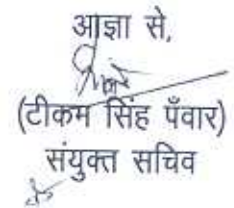 आज्ञा से,
(टीकम सिंह पँवार)
संयुक्त सचिव